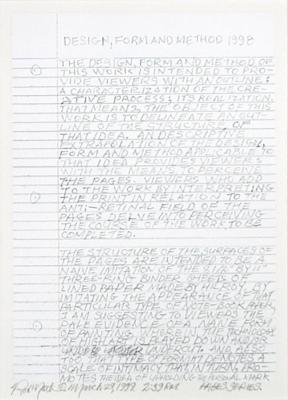 DESIGN, FORM AND METHOD 1998
THE DESIGN, FORM AND METHOD OF
THIS WORK IS INTENDED TO PRO-
VIDE VIEWERS WITH AN OUTLINE:
A CHARACTERIZATION OF THE CRE-
ATIVE PROCESS; ITS REALIZATION.
THAT MEANS, THE OBJECT OF THIS
WORK IS TO DELINEATE AN OUT-
LINE OF THE STRUCTURE OF
THAT IDEA. AN DESCRIPTIVE
EXTRAPOLATION OF THE DESIGN,
FORM AND METHOD APPLICABLE TO
THAT IDEA PROVIDES VIEWERS
WITH THE MEANS TO PERCEIVE
THE PAGES. VIEWERS WHO ADD
TO THE WORK BY INTERPRETING
THE PRINT IN RELATION TO THE
ANTI-ARTINAL FIELD OF THE
PAGES DELVE INTO PERCEIVING
THE COURSE OF THE WORK TO BE
COMPLETED.
THE STRUCTURE OF THE SURFACES OF
THE PAGES ARE INTENDED TO BE A
NAIVE IMITATION OF THE
LINED PAPER MADE BY HILROY. BY
IMITATING THE APPEARANCE OF THAT
PARTICULAR TYPE OF
I AM SUGGESTING TO VIEWERS THE
PALE EVIDENCE OF A NAIVE FORM
OF PAINTING
OF HIGH ART PLAYED DOWN AND/OR
THE FORMAT DENOTES A
SCALE OF INTIMACY THAT IN TURN
NOTES THE IDEA OF MARK
March 29, 1998 2:39 PAGES SERIES